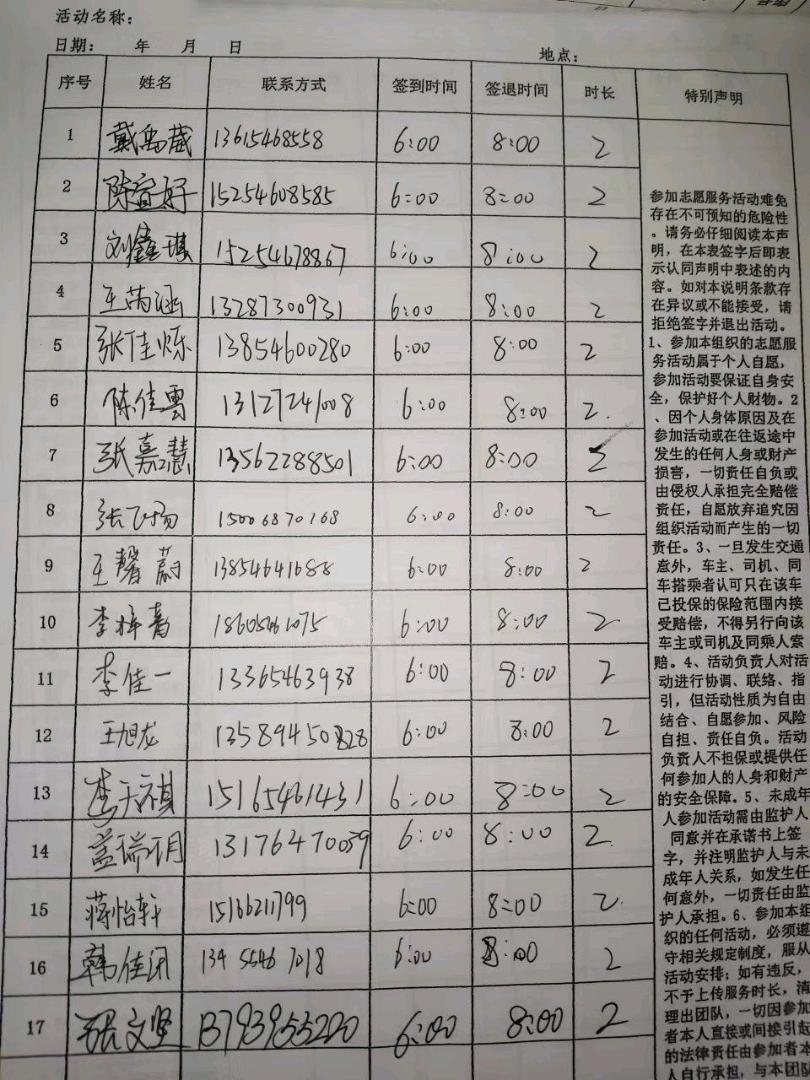 活动名称：
日期： 年 月 日 地点：
序号 姓名 联系方式 签到时间 签退时间 时长 特别声明
1 13615468558 6:00 8:00 2
2 陈宣好 15254608585 6:00 8:00 2
3 刘鑫琪 15254678867 6:00 8:00 2
4 王芮涵 13287300931 6:00 8:00 2
5 张佳烁 13854600280 6:00 8:00 2
6 陈佳雲 13127241008 6:00 8:00 2
7 张嘉慧 13562288501 6:00 8:00 2
8 张飞扬 15006870168 6:00 8:00 2
9 王馨蔚 13854641688 6:00 8:00 2
10 6:00 8:00 2
11 李佳一 13365463938 6:00 8:00 2
12 王旭龙 6:00 8:00 2
13 15165461431 6:00 8:00 2
14 盖瑞玥 13176470039 6:00 8:00 2
15 蒋怡轩 6:00 8:00 2
16 韩佳润 134 5546 7018 6:00 8:00 2
17 张文坚 13793953220 6:00 8:00 2
参加志愿服务活动难免
存在不可预知的危险性
。请务必仔细阅读本声
明，在本表签字后即表
示认同声明中表述的内
容。如对本说明条款存
在异议或不能接受，请
拒绝签字并退出活动。
1、参加本组织的志愿服
务活动属于个人自愿，
参加活动要保证自身安
全，保护好个人财物。2
、因个人身体原因及在
参加活动或在往返途中
发生的任何人身或财产
损害，一切责任自负或
由侵权人承担完全赔偿
责任，自愿放弃追究因
组织活动而产生的一切
责任。3、一旦发生交通
意外，车主、司机、同
车搭乘者认可只在该车
已投保的保险范围内接
受赔偿，不得另行向该
车主或司机及同乘人索
赔。4、活动负责人对活
动进行协调、联络、指
引，但活动性质为自由
结合、自愿参加、风险
自担、责任自负。活动
负责人不担保或提供任
何参加人的人身和财产
的安全保障。5、未成年
人参加活动需由监护人
同意并在承诺书上签
字，并注明监护人与未
成年人关系，如发生任
何意外，一切责任由监
护人承担。6、参加本组
织的任何活动，必须遵
守相关规定制度，服从
活动安排；如有违反，
不予上传服务时长，清
理出团队，一切因参加
者本人直接或间接引起
的法律责任由参加者本
人自行承担，与本团队